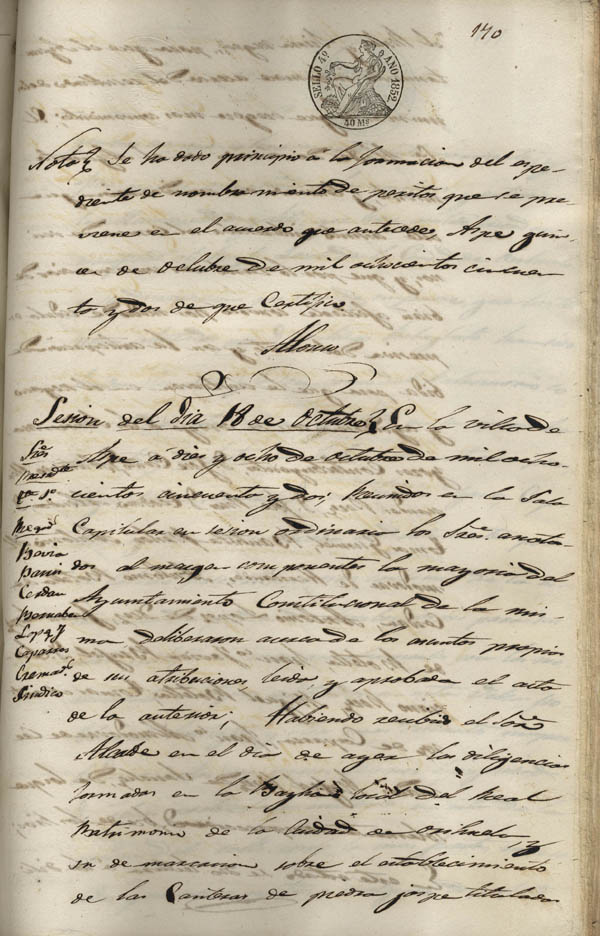 140
SELLO 4º AÑO 1852
40 Ms
Nota. Se ha dado principio á la formacion del espe-
diente de nombramiento de peritos que se pre-
viene en el acuerdo que antecede, Aspe quin-
ce de Octubre de mil ochocientos cincuen-
ta y dos de que Certifico.
Alonso
Sesion del dia 18 de Octubre. En la villa de
Aspe á dies y ocho de octubre de mil ocho-
cientos cincuenta y dos; Reunidos en la Sala
Capitular en sesion ordinaria los Sres. anota-
dos al margen componentes la mayoria del
Ayuntamiento Constitucional de la mis-
ma deliberaron acerca de los asuntos propios
de sus atribuciones, leida y aprobada el acta
de la anterior; Habiendo recibido el Sor.
Alcalde en el dia de ayer las diligencias
formadas en la Baylia local del Real
Patrimonio de la Ciudad de Orihuela, y
de marcacion sobre el establecimiento
de las Canteras de piedra jaspe tituladas
Sres.
Presidte
Pavia
Cerdan
Bernabeu
Lopez
Caparros
Cremads.
Sindico